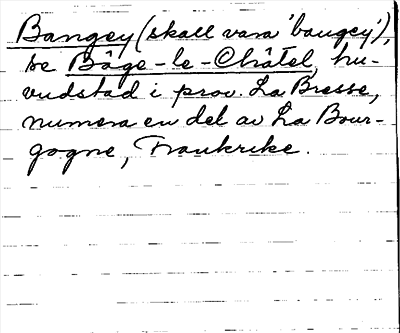 Bangey (skall vara 'baugey'),
se Bâge-le-Châtel, hu-
vudstad i prov. La Bresse,
numera en del av La Bour-
gogne, Frankrike.